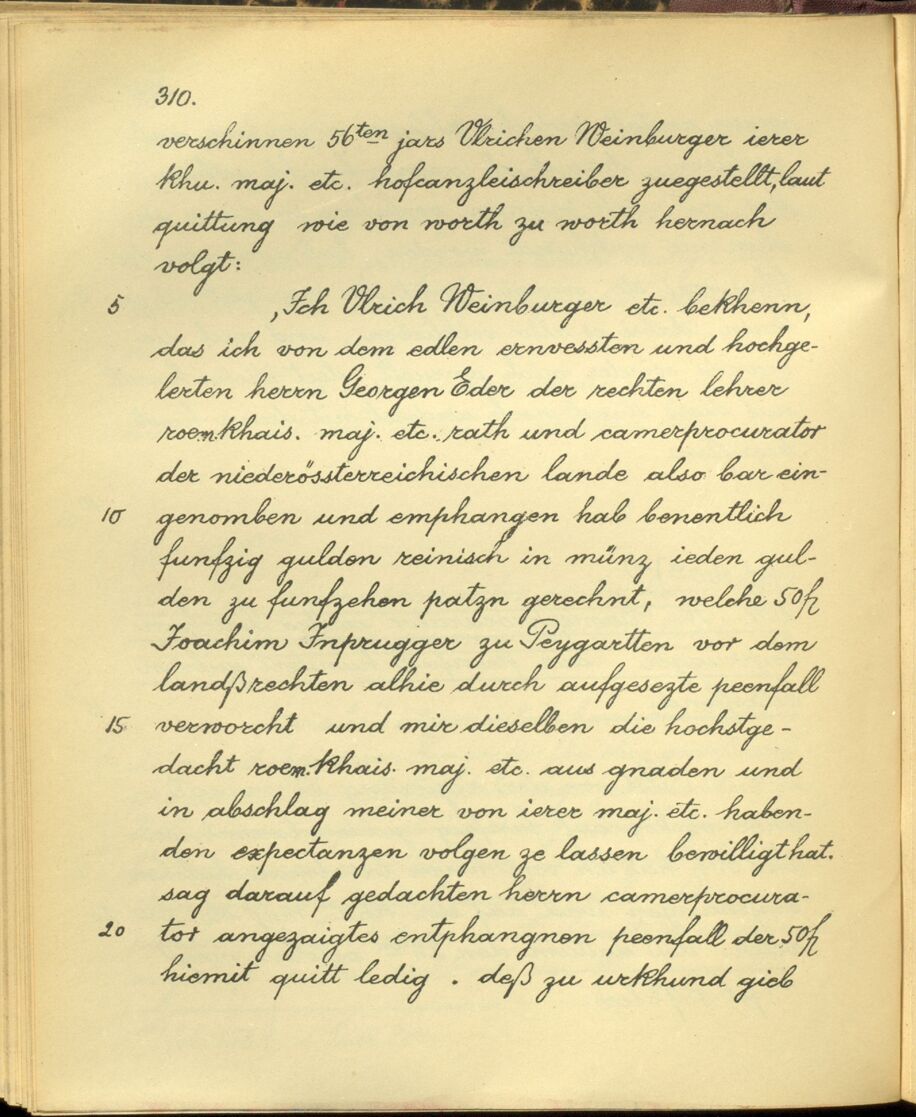 310.
verschinnen 56ten jars Ulrichen Weinburger ierer
khu. maj. etc. hofcanzleischreiber zuegestellt, laut
quittung wie von worth zu worth hernach
volgt:
5 ‚Ich Ulrich Weinburger etc. bekhenn,
das ich von dem edlen ernvessten und hochge-
lerten herrn Georgen Eder der rechten lehrer
roem. khais. maj. etc. rath und camerprocurator
der niederössterreichischen lande also bar ein-
10 genomben und emphangen hab benentlich
funfzig gulden reinisch in münz ieden gul-
den zu funfzehen patzn gerechnt, welche 50 fl
Joachim Inprugger zu Peygartten vor dem
landßrechten alhie durch aufgesezte peenfall
15 verworcht und mir dieselben die hochstge-
dacht roem. khais. maj. etc. aus gnaden und
in abschlag meiner von ierer maj. etc. haben-
den expectanzen volgen ze lassen bewilligt hat.
sag darauf gedachten herrn camerprocura-
20 tor angezaigtes entphangnen peenfall der 50 fl
hiemit quitt ledig . deß zu urkhund gieb